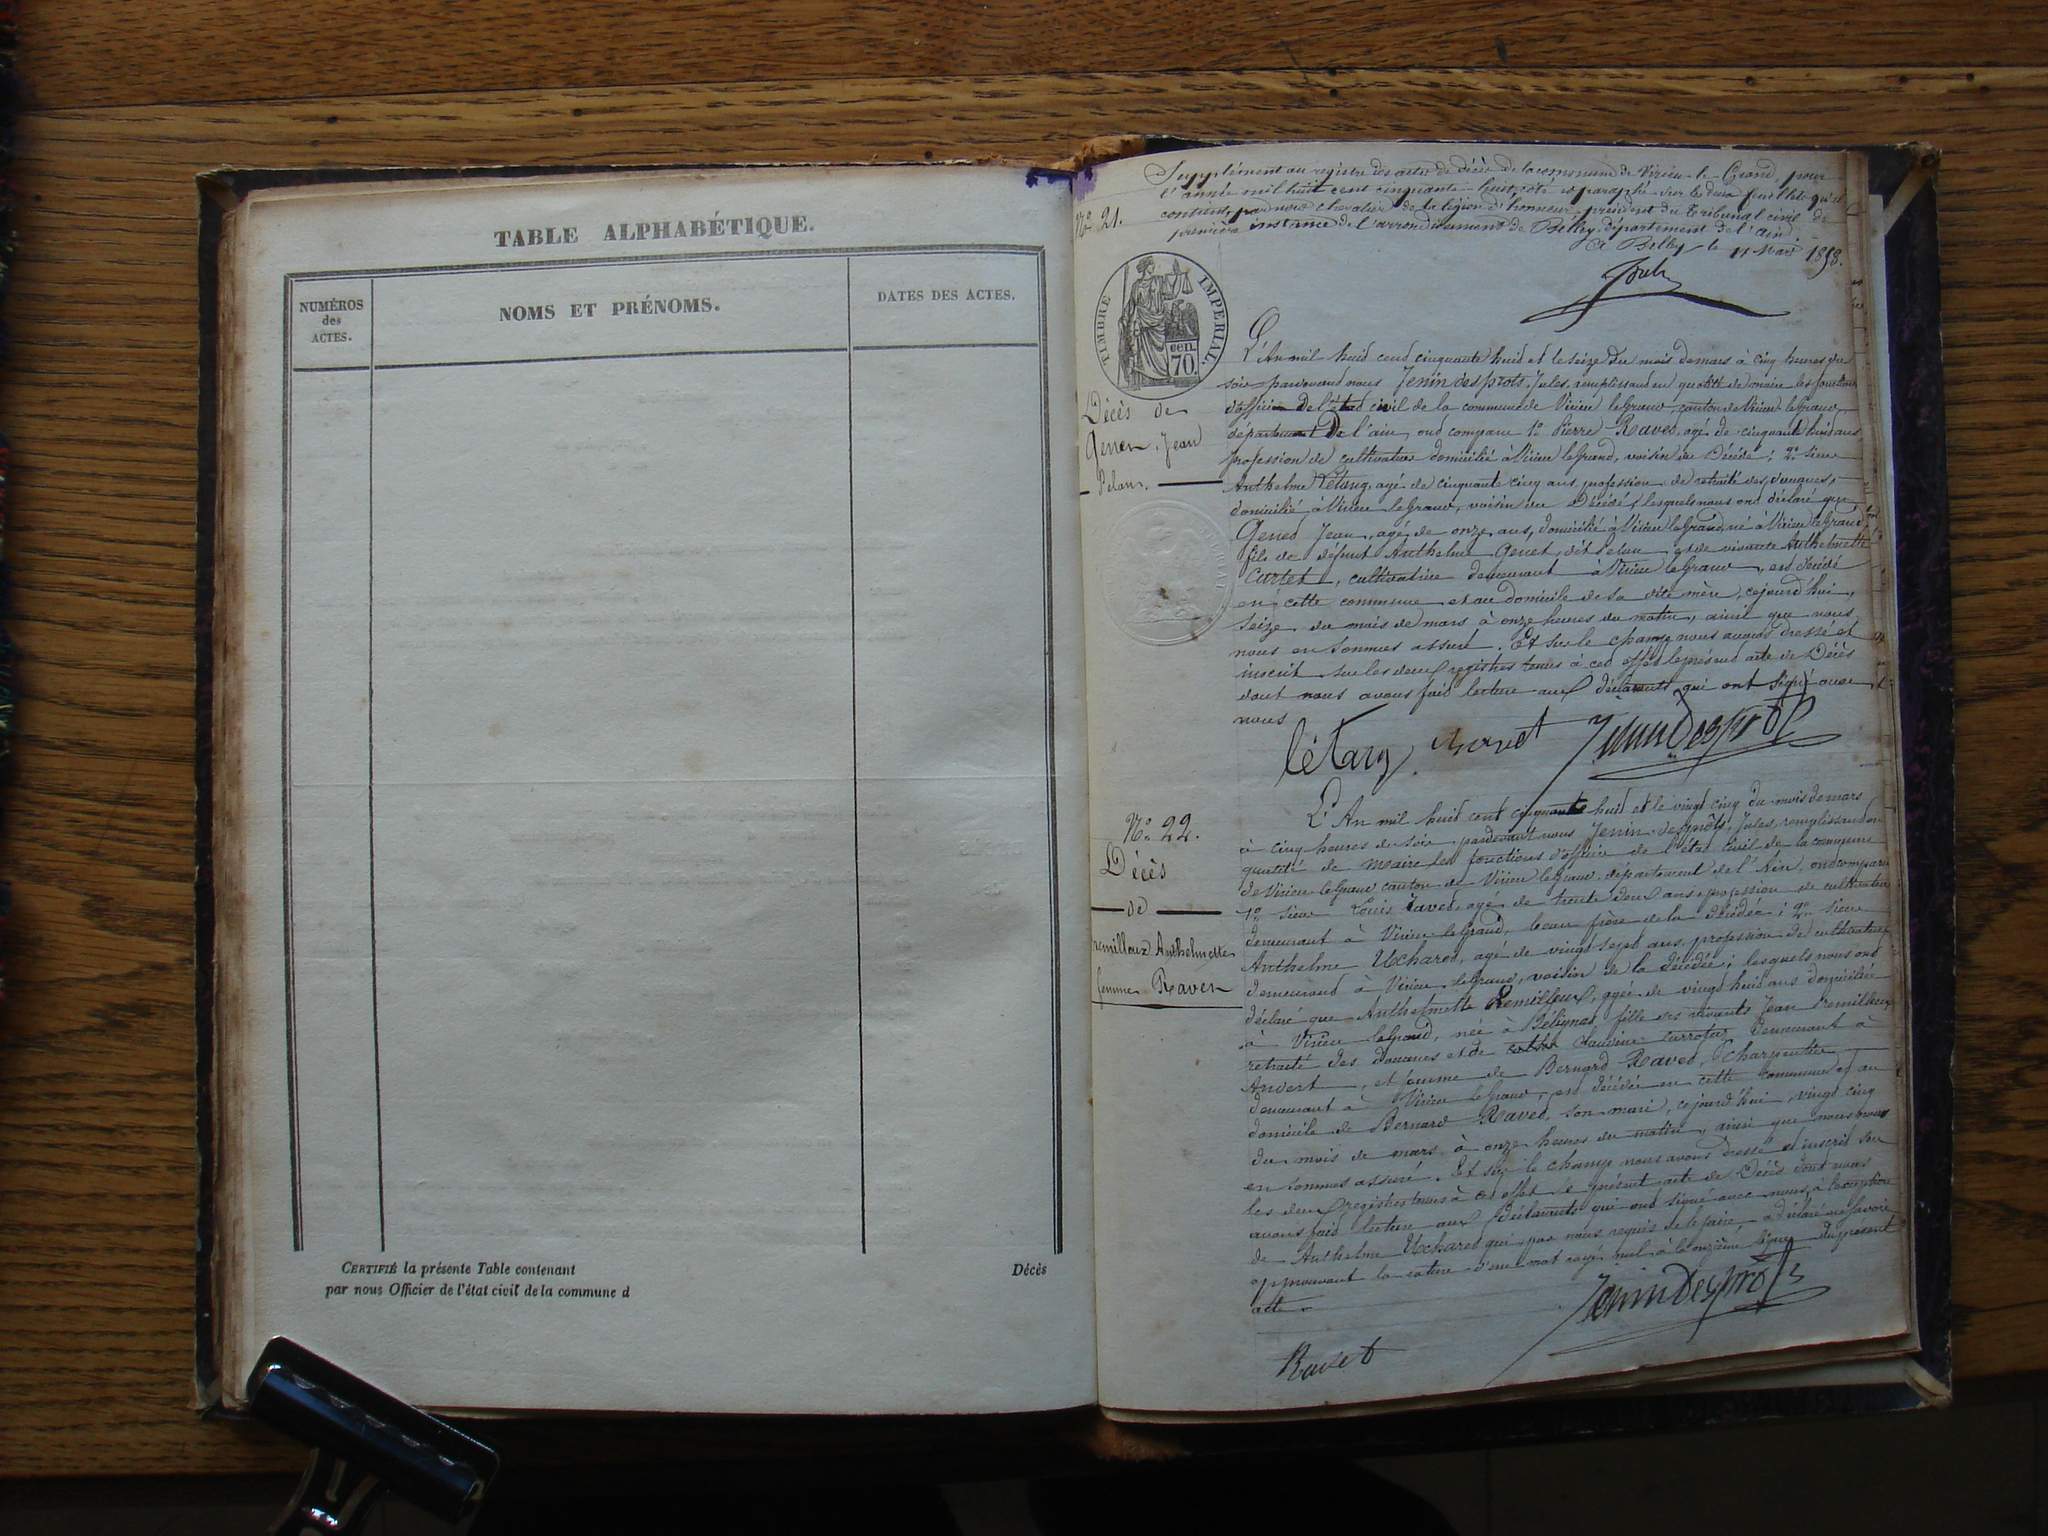 TABLE ALPHABÉTIQUE.
NUMÉROS
des
ACTES.
NOMS ET PRÉNOMS.
DATES DES ACTES.
CERTIFIÉ la présente Table contenant
Décès
par nous Officier de l'état civil de la commune d
Supplément au registre des actes de décès de la commune de Virieu-le-Grand, pour
l'année mil huit cent cinquante-huit, coté et paraphé sur les deux feuillets qu'il
contient, par nous chevalier de la légion d'honneur, président du Tribunal civil de
première instance de l'arrondissement de Belley, département de l'ain
à Belley le 11 Mars 1858.
No 21.
TIMBRE IMPERIAL
70 cen.
Décès de
Genet, Jean
Pelan.
L'An mil huid cend cinquante huid et le seize du mois de mars à cinq heures du
soir pardevand nous Jenin desprots, Jules, remplissand en qualité de maire les fonctions
d'officier de l'étad civil de la commune de Virieu le grand, canton de Virieu le grand,
département de l'ain, ond comparu 1o Pierre Raved, agé de cinquante huid ans,
profession de cultivateur domicilié à Virieu le grand, voisin du Décédé; 2o sieur
Anthelme Létang, agé de cinquante cinq ans, profession de retraité des douanes,
domicilié à Virieu le grand, voisin du Décédé, lesquels nous ond déclaré que
Gened Jean, agé de onze ans, domicilié à Virieu le Grand, né à Virieu le grand,
fils de défunt Anthelme Genet, dit Pelan, et de vivante Anthelmette
Curtet, cultivatrice demeurant à Virieu le Grand, est décédé
en cette commune et au domicile de sa dite mère, cejourd'hui,
seize du mois de mars à onze heures du matin, ainsi que nous
nous en sommes assuré. Et sur le champ nous avons dressé et
inscrit sur les deux registres tenus à ced effed le présend acte de Décès
dont nous avons faid lecture aux déclarants qui ont signé avec
nous
létang Raved JeninDesprots
No 22.
Décès
de
Remilleux Anthelmette
femme Raved
L'An mil huid cent cinquante huid et le vingt cinq du mois de mars
à cinq heures du soir, pardevant nous Jenin-desprots, Jules, remplissand en
qualité de maire les fonctions d'officier de l'état civil de la commune
de Virieu-le Grand canton de Virieu le Grand, département de l'Ain, ond comparu
1o sieur Louis Raved, agé de trente deux ans profession de cultivateur
demeurant à Virieu-le Grand, beau frère de la décédée; 2o sieur
Anthelme Uchared, agé de vingt sept ans, profession de cultivateur
demeurand à Virieu le Grand, voisin de la Décédée; lesquels nous ond
déclaré que Anthelmette Remilleux, agée de vingt huid ans domiciliée
à Virieu le Grand, née à fille des vivants Jean Remilleux
retraité des Douanes et de Claudine demeurant à
Andert, et femme de Bernard Raved, charpentier
demeurant à Virieu le Grand, est décédée en cette commune et au
domicile de Bernard Raved, son mari, cejourd'hui, vingt cinq
du mois de mars à onze heures du matin, ainsi que nous nous
en sommes assuré. Et sur le champ nous avons dressé et inscrit sur
les deux registres tenus à cet effet le présent acte de Décès dont nous
avons faid lecture aux déclarants qui ond signé avec nous, à l'exception
de Anthelme Uchared qui, par nous requis de le faire, a déclaré ne savoir
approuvant la rature d'un mot rayé nul à la onzième ligne du présent
acte.
JeninDesprots
Raved